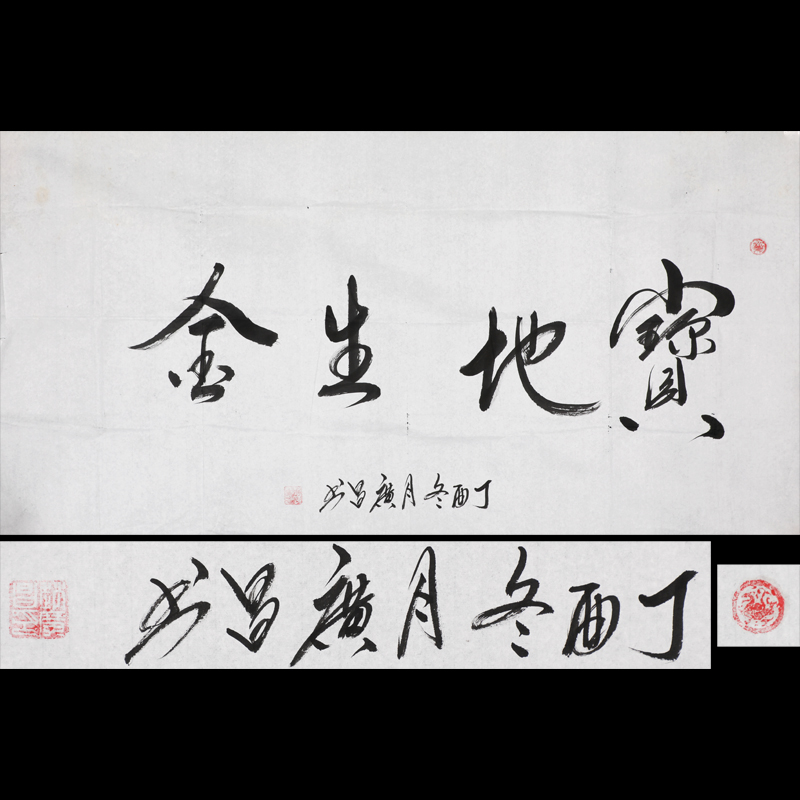 寶地生金
丁酉冬月廣昌书
丁酉冬月廣昌书